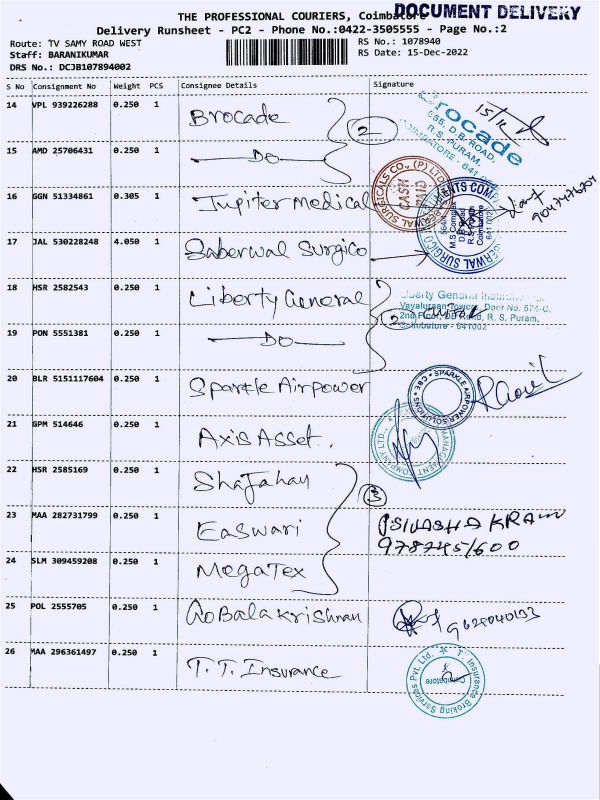 DOCUMENT DELIVERY
THE PROFESSIONAL COURIERS, Coimbatore
Delivery Runsheet - PC2 - Phone No.:0422-3505555 - Page No.:2
Route: TV SAMY ROAD WEST
RS No.: 1078940
Staff: BARANIKUMAR
RS Date: 15-Dec-2022
DRS No.: DCJB107894002
S No Consignment No Weight PCS Consignee Details Signature
14 VPL 939226288 0.250 1 Brocade
2
15/12
Brocade
D.B. ROAD,
R.S. PURAM,
COIMBATORE - 641
15 AMD 25706431 0.250 1 Do
16 GGN 51334861 0.305 1 Jupiter Medical
CASH PAID
M.S. Complex
Coimbatore
641 002
17 JAL 530228248 4.050 1 Saberwal Surgico
18 HSR 2582543 0.250 1 Liberty General
2
Liberty General Insurance
Vayaluraan Towers, Door No. 574-C,
2nd Floor, DB Road, R. S. Puram,
Coimbatore - 641002
19 PON 5551381 0.250 1 Do
20 BLR 5151117604 0.250 1 Sparkle Airpower
SPARKLE AIRPOWER SOLUTIONS * CBE *
21 GPM 514646 0.250 1 Axis Asset.
MANAGEMENT COMPANY LTD.
22 HSR 2585169 0.250 1 Shajahan
3
23 MAA 282731799 0.250 1 Easwari
24 SLM 309459208 0.250 1 MegaTex
25 POL 2555705 0.250 1 GoBalakrishnan
26 MAA 296361497 0.250 1 T.T. Insurance
T. T. Insurance Broking Services Pvt. Ltd.
Coimbatore